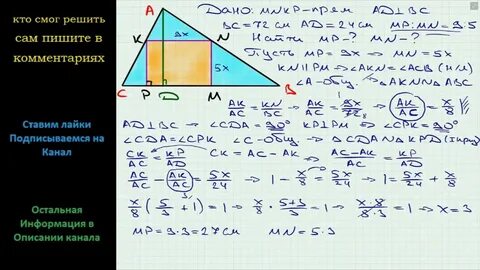 кто смог решить
сам пишите в
комментариях
Ставим лайки
Подписываемся на
Канал
Остальная
Информация в
Описании канала
A
K
N
3x
5x
C
P
D
M
B
Дано: MNKP-прям AD⊥BC
BC=72см AD=24см MP:MN=9:5
Найти MP-? MN-?
Пусть MP=9x ⇒ MN=5x
KN||PM ⇒ ∠AKN=∠ACB (н/л)
∠A-общ. ⇒ △AKN∾△ABC
AK/AC = KN/BC ⇒ AK/AC = 9x/72 (AK/AC) = x/8
AD⊥BC ⇒ ∠CDA=90° KP⊥PM ⇒ ∠CPK=90°
∠CDA=∠CPK ∠C-общ ⇒ △CDA∾△KPD
CK/AC = KP/AD CK=AC-AK ⇒ AC-AK/AC = KP/AD
AC/AC - (AK/AC) = 5x/24 1- x/8 = 5x/24 ⇒ 1 = 5x/24 + x/8
x/8 (5/3 + 1) = 1 ⇒ x/8 · 5+3/3 = 1 ⇒ x·8/8·3 = 1 ⇒ x=3
MP=9·3=27см MN=5·3